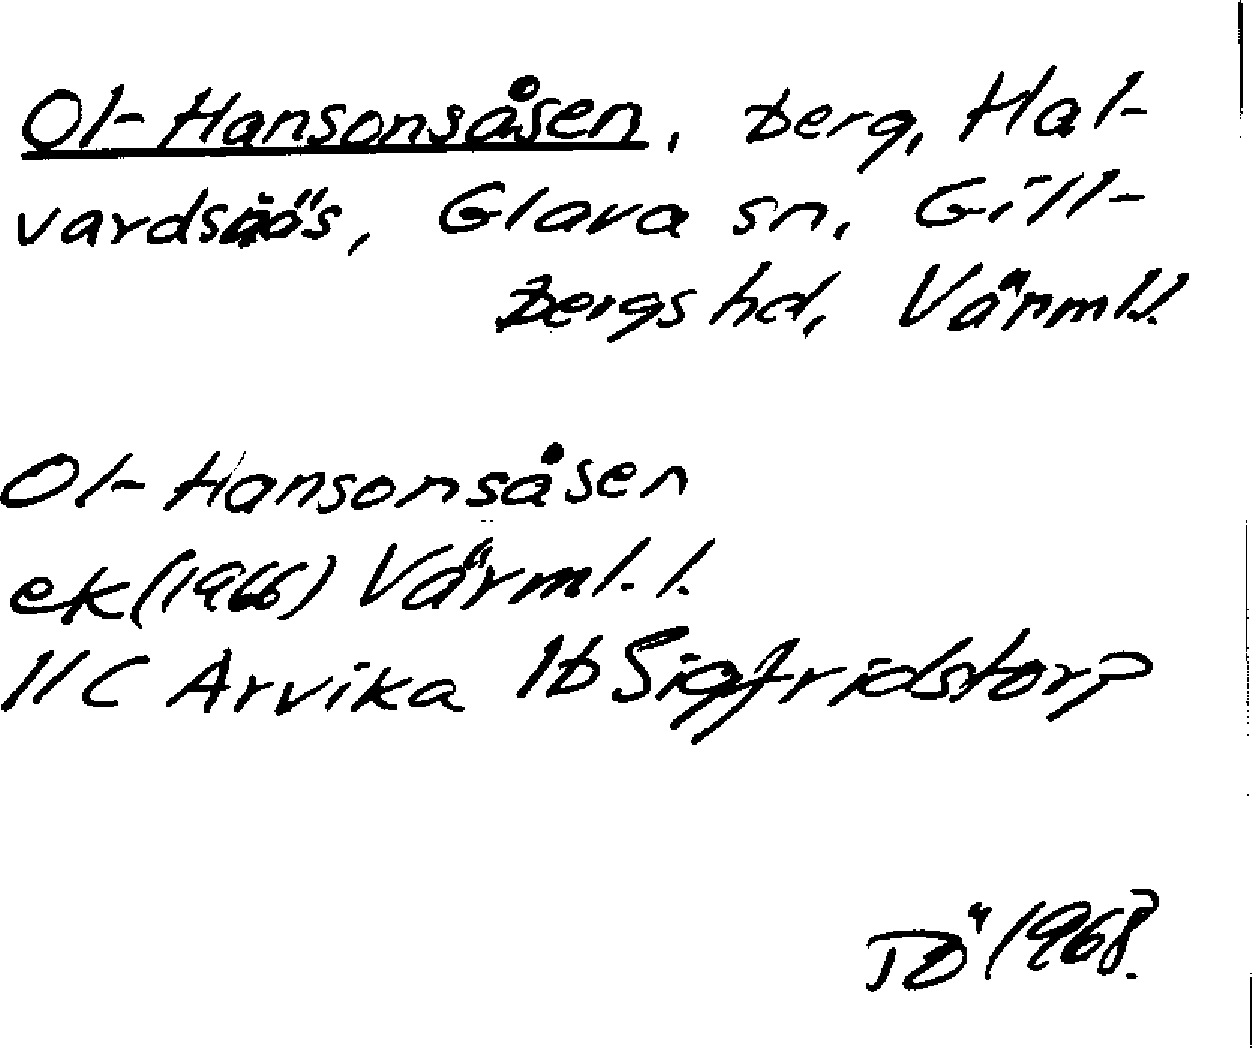 Ol-Hansonsåsen, berg, Hal-
vardsnäs, Glava sn, Gill-
bergs hd, Värml.l.
Ol-Hansonsåsen
ek(1966) Värml.l.
11C Arvika 1b Sigfridstorp
TÖ 1968.